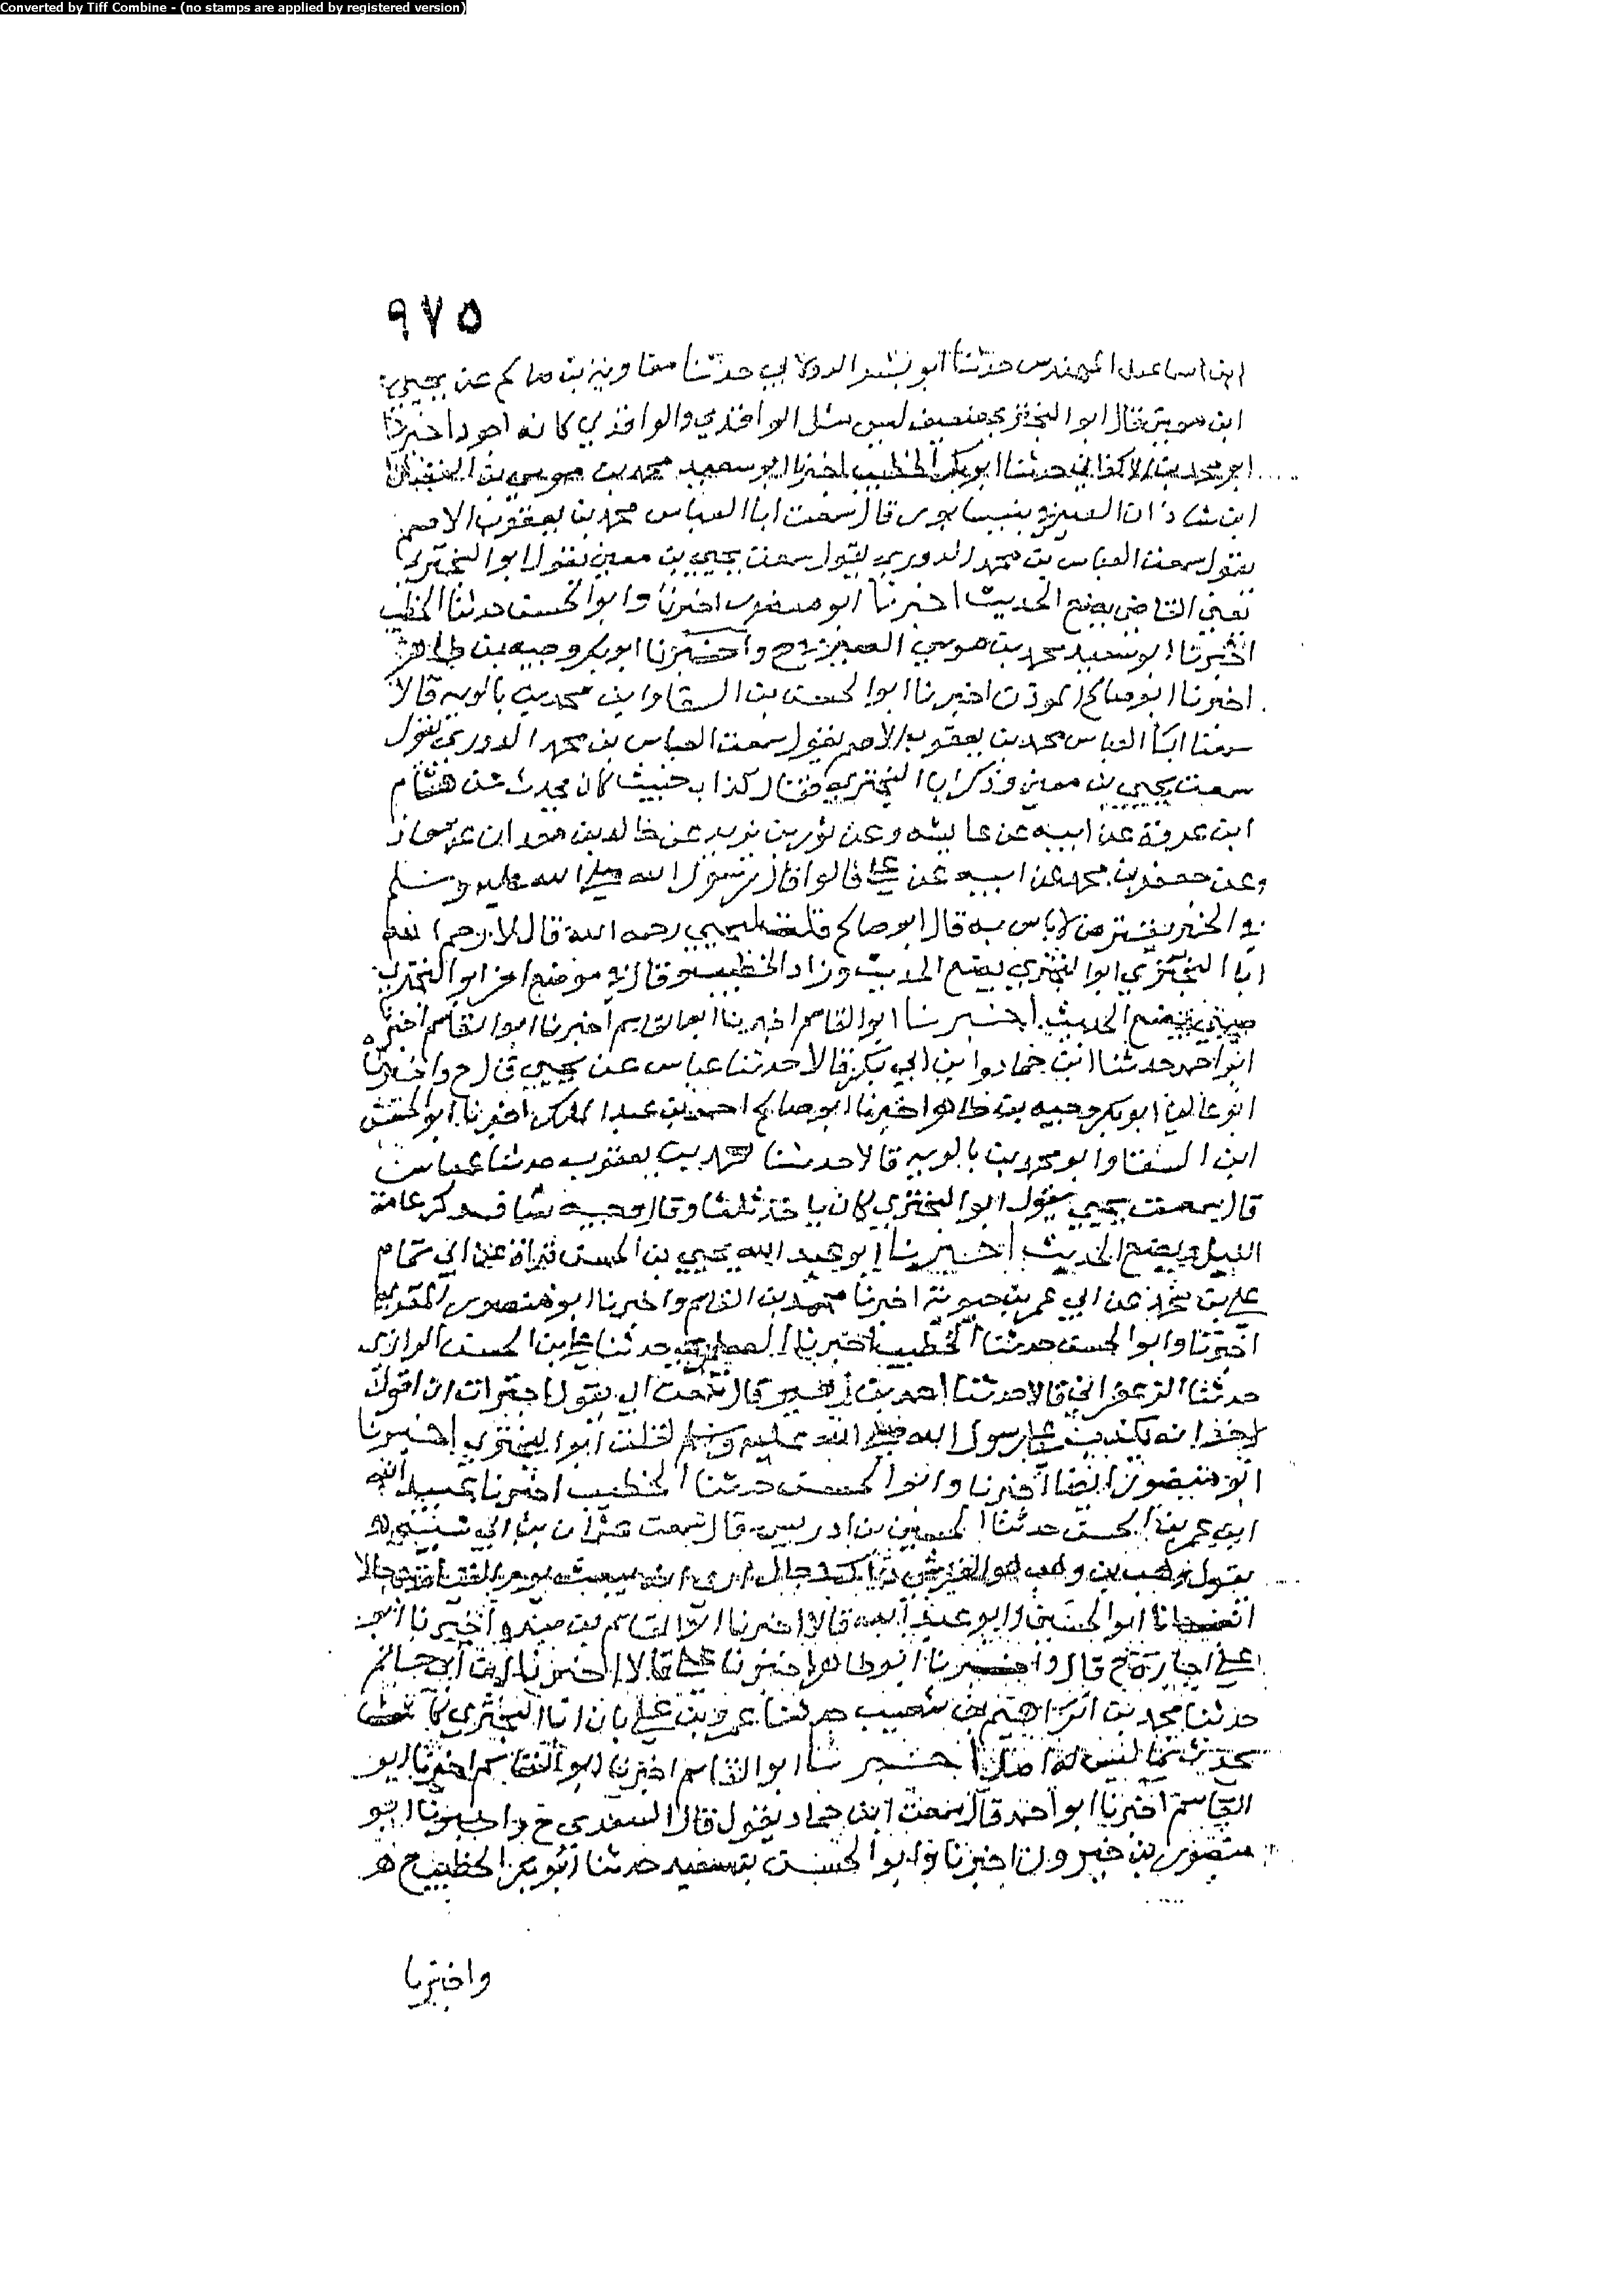 Converted by Tiff Combine - (no stamps are applied by registered version)
٩٧٥
ابن اسماعيل المهندس حدثنا ابو بشر الدولابي حدثنا معاوية بن صالح عن يحيى
ابن معين قال ابو البختري ضعيف ليس مثل الواقدي والواقدي كانه اجود اخبرنا
ابو محمد بن الاكفاني حدثنا ابو بكر الخطيب اخبرنا ابو سعيد محمد بن موسى بن الفضل
ابن شاذان الصيرفي بنيسابور قال سمعت ابا العباس محمد بن يعقوب الاصم
يقول سمعت العباس بن محمد الدوري يقول سمعت يحيى بن معين يقول ابو البختري
يعني القاضي يضع الحديث اخبرنا ابو منصور اخبرنا وابو الحسن حدثنا الخطيب
اخبرنا ابو سعيد محمد بن موسى الصيرفي ح واخبرنا ابو بكر وجيه بن طاهر
اخبرنا ابو صالح الموذن اخبرنا ابو الحسن بن السقا وابن محمد بن بالويه قالا
سمعنا ابا العباس محمد بن يعقوب الاصم يقول سمعت العباس بن محمد الدوري يقول
سمعت يحيى بن معين وذكر ابا البختري فقال كذاب خبيث كان يحدث عن هشام
ابن عروة عن ابيه عن عايشه وعن ثور بن يزيد عن خالد بن معدان عن معاذ
وعن جعفر بن محمد عن ابيه عن علي قالوا قال رسول الله صلى الله عليه وسلم
في الخبز يقترض لا باس به قال ابو صالح قلت ليحيى رحمه الله قال لا رحم الله
ابا البختري ابو البختري يضع الحديث وزاد الخطيب وقال في موضع اخر ابو البختري
يضع الحديث اخبرنا ابو القاسم اخبرنا ابو القاسم اخبرنا ابو القاسم اخبرنا
ابو احمد حدثنا ابن حماد وابن ابي بكر قالا حدثنا عباس عن يحيى قال ح واخبرنا
ابو بكر وجيه بن طاهر اخبرنا ابو صالح احمد بن عبد الملك اخبرنا ابو الحسن
ابن السقا وابو محمد بن بالويه قالا حدثنا محمد بن يعقوب حدثنا عباس
قال سمعت يحيى يقول ابو البختري كان ياخذ فلسا وقال وجيه شا فيذكر عامة
الليل ويضع الحديث اخبرنا ابو عبد الله يحيى بن الحسن قراة عن ابي تمام
علي بن محمد عن ابي عمر بن حيوية اخبرنا محمد بن القاسم واخبرنا ابو منصور المقري
اخبرنا وابو الحسن حدثنا الخطيب اخبرنا حدثنا علي بن الحسن الرازي
حدثنا الزعفراني قالا حدثنا احمد بن زهير قال سمعت ابي يقول اجترات ان اقول
لاحد انه يكذب على رسول الله صلى الله عليه وسلم لقلت ابو البختري اخبرنا
ابو منصور ايضا اخبرنا وابو الحسن حدثنا الخطيب اخبرنا عبيد الله
ابن عمر بن الحسن حدثنا الحسين بن ادريس قال سمعت عثمان بن ابي شيبة
يقول وهب بن وهب هو دجال ارى انه يبعث يوم القيامة دجالا
انبانا ابو الحسين وابو عبد الله قالا اخبرنا ابو القاسم بن منده اخبرنا ابو
علي اجازة ح قال واخبرنا ابو طاهر اخبرنا علي قالا اخبرنا ابن ابي حاتم
حدثنا محمد بن ابراهيم بن شعيب حدثنا عمرو بن علي بان ابا البختري كان
يحدث بما ليس له اصل اخبرنا ابو القاسم اخبرنا ابو القاسم اخبرنا ابو
القاسم اخبرنا ابو احمد قال سمعت ابن حماد يقول قال السعدي ح واخبرنا ابو
منصور بن خيرون اخبرنا وابو الحسن بن سعيد حدثنا ابو بكر الخطيب ح
واخبرنا